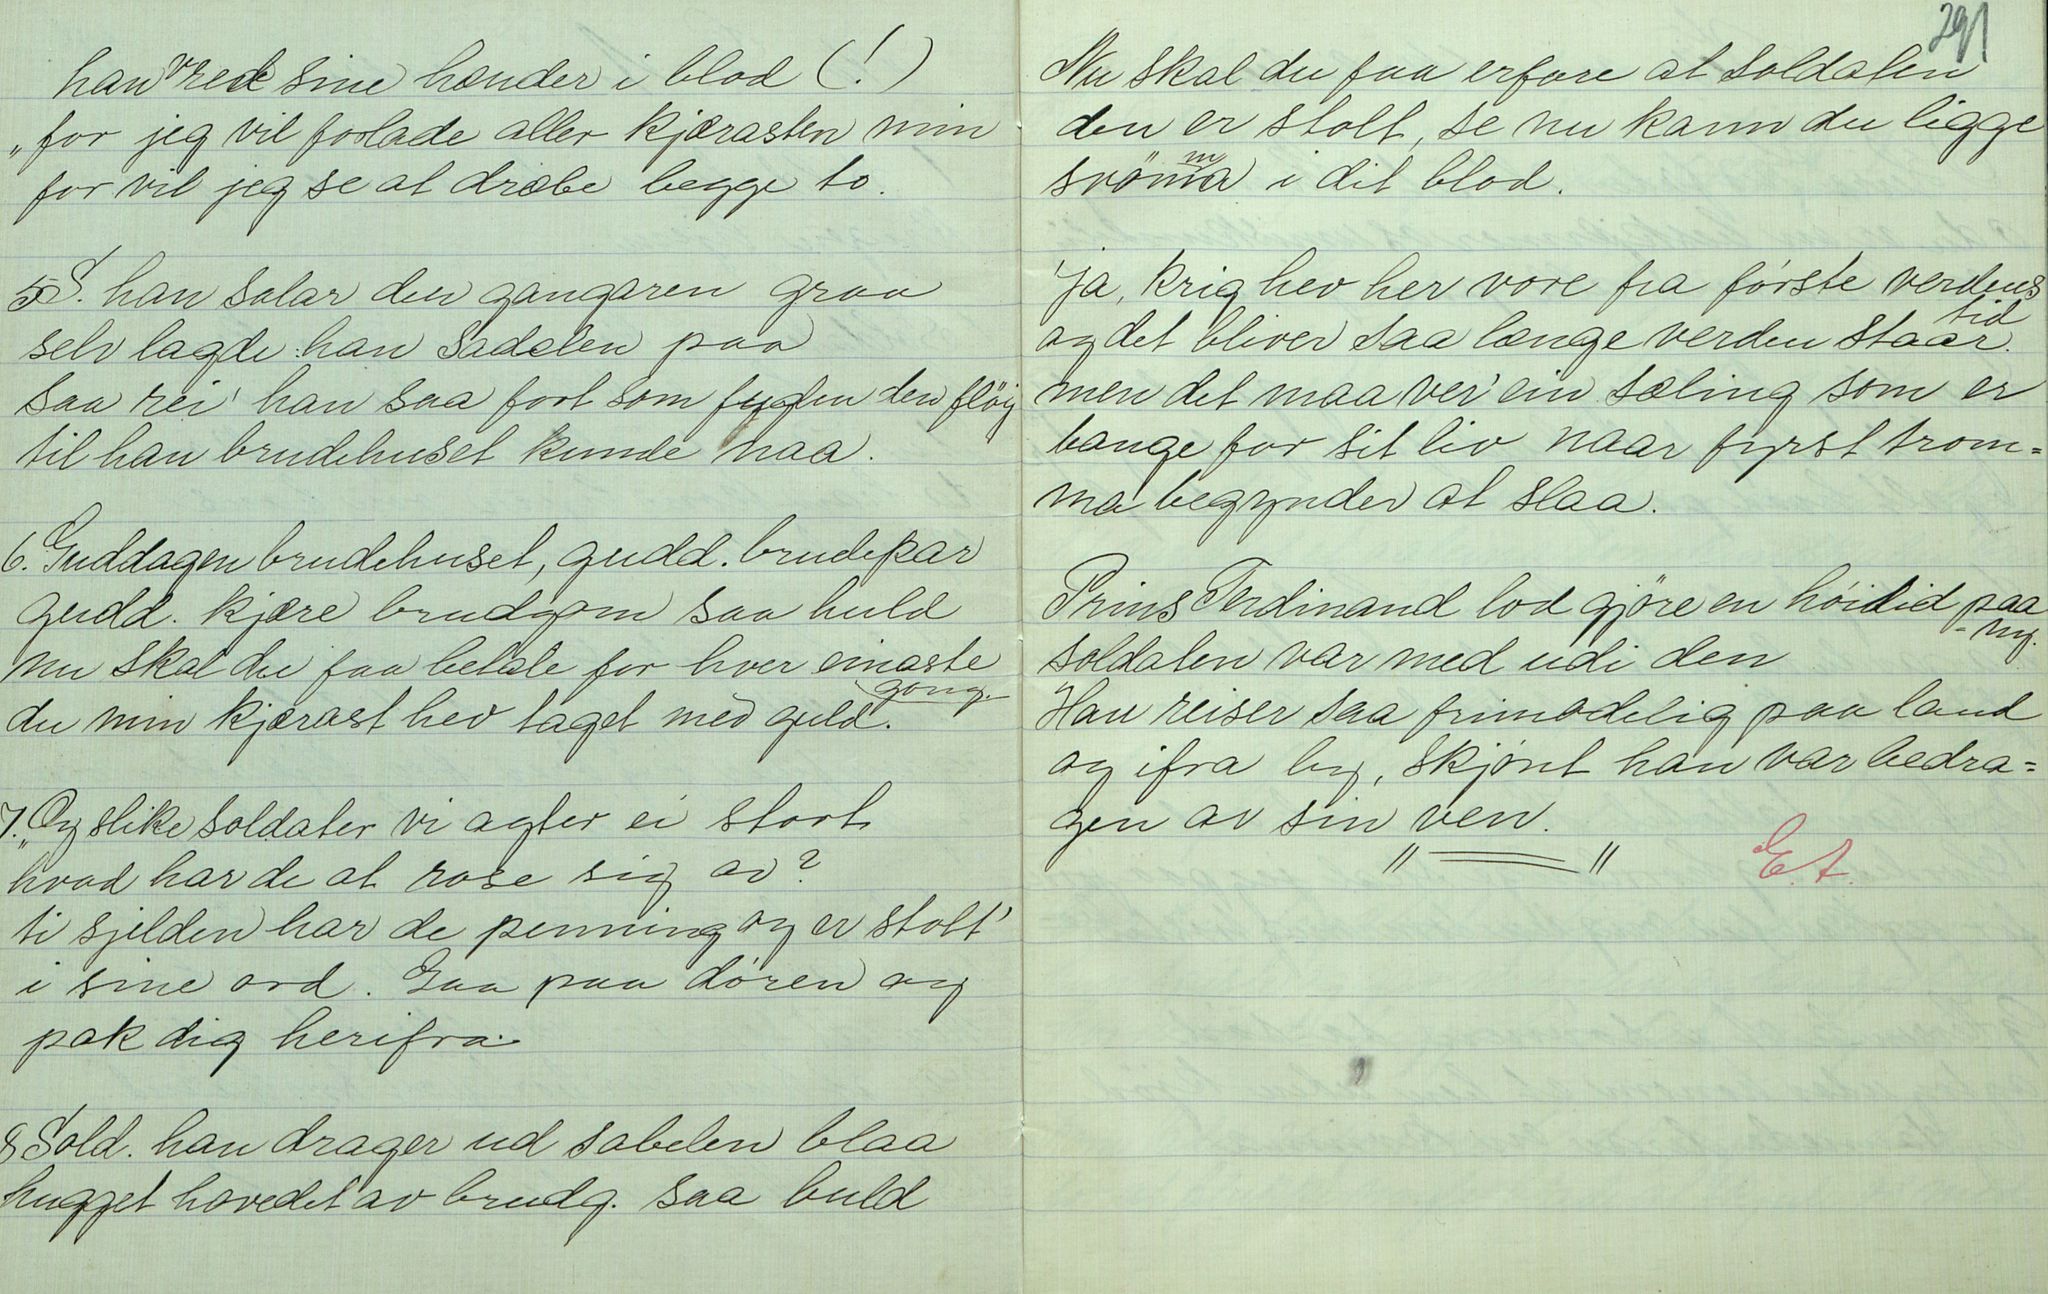 han vred sine hænder i blod (!)
„for jeg vil forlade aller kjærasten min
for vil jeg se at dræbe begge to.
5 S. han salar den gangaren graa
selv lagde han Sadelen paa
saa rei' han saa fort som fuglen den fløig
til han brudehuset kunde naa.
6. Guddagen brudehuset, gudd. brudepar
gudd. kjære brudgom saa huld
nu skal du faa betale for hver einaste
gong.
du min kjærast hev taget med guld.
7. „Og slike soldater vi agter ei stort
hvad har de at rose sig av?
ti sjelden har de penning og er stolt'
i sine ord. Gaa paa døren og
pak dig herifra.
8 Sold. han drager ud sabelen blaa
hugget hovedet av brudg. saa buld
291
Nu skal du faa erfare at soldaten
den er stolt, se nu kann du ligge
svømma i dit blod.
Ja, krig hev her vore fra første verdens
tid
og det bliver saa længe verden staar.
men det maa ver' ein sæling som er
bange for sit liv naar fyrst trom=
ma begynder at slaa.
Prins Ferdinand lod gjøre en høitid paa
ny.
soldaten var med udi den
Han reiser saa frimodelig paa land
og ifra by, skjønt han var bedra=
gen av sin ven.
E.A.